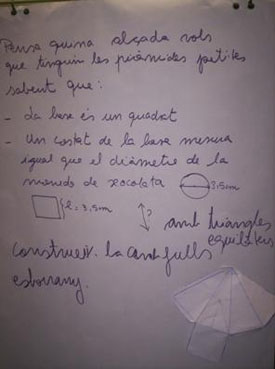 Pensa quina alçada vols
que tinguin les piràmides petites
sabent que:
- La base és un quadrat
- Un costat de la base mesura
igual que el diàmetre de la
moneda de xocolata 3,5cm
l = 3,5cm
?
amb triangles
equilàters
Construeix-la amb fulls
esborrany.